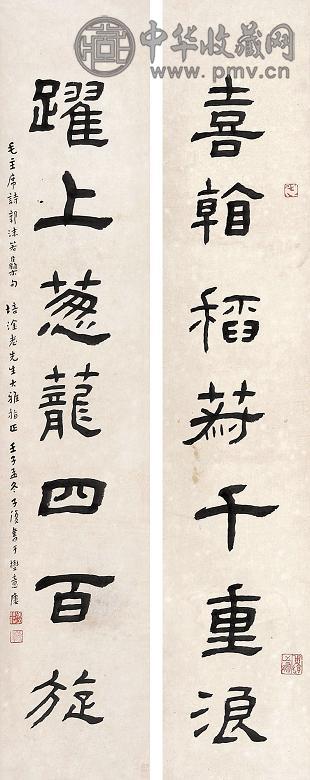 中华收藏网
www.pmv.cn
喜看稻菽千重浪
躍上葱蘢四百旋
毛主席詩郭沫若集句
培淦老先生大雅指正 壬子孟冬子復書于